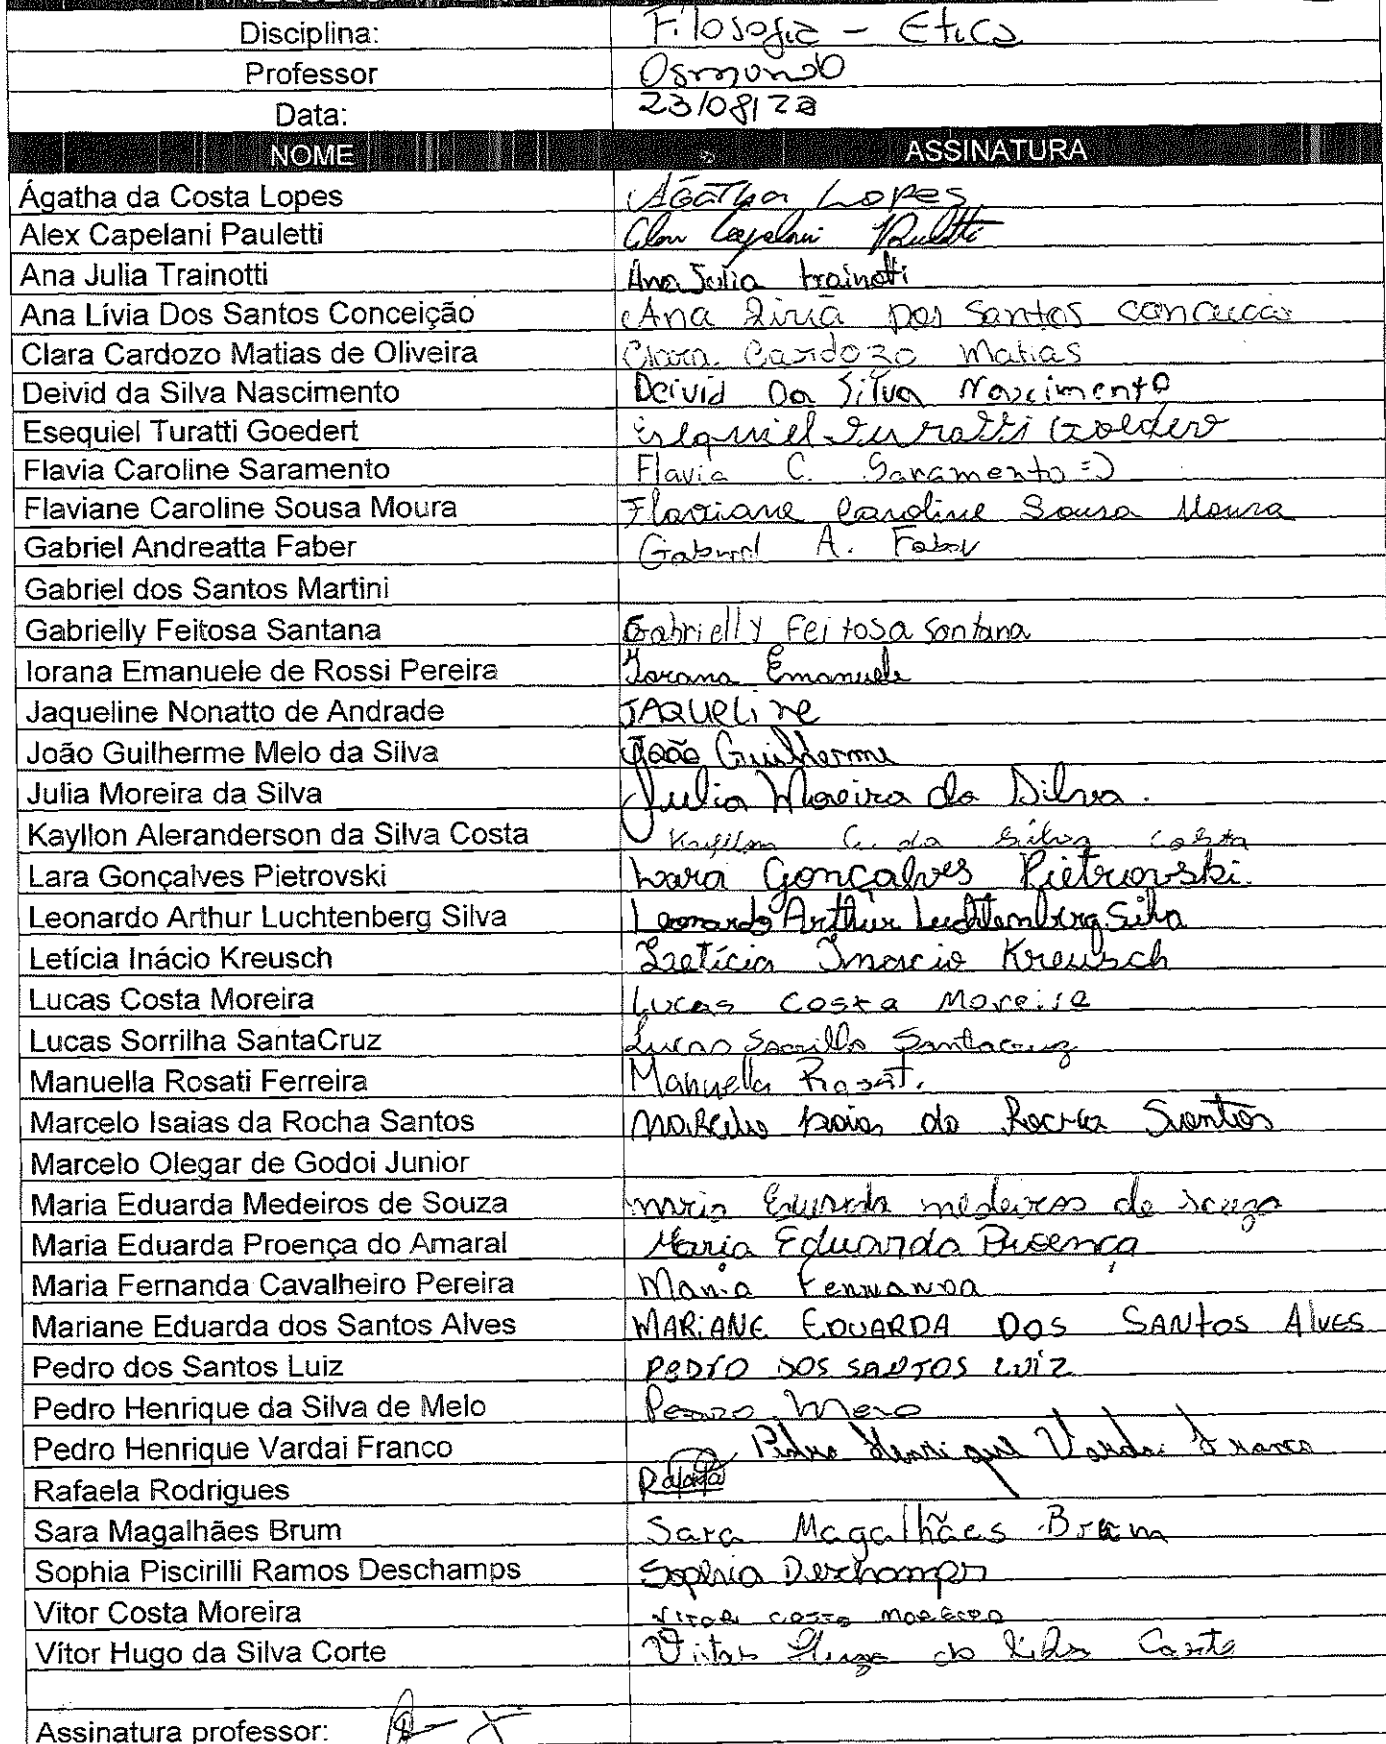 Disciplina: Filosofia - Etica
Professor Osmundo
Data: 23/08/22
NOME ASSINATURA
Ágatha da Costa Lopes Ágatha Lopes
Alex Capelani Pauletti Alex Capelani Pauletti
Ana Julia Trainotti Ana Julia trainotti
Ana Lívia Dos Santos Conceição Ana Livia Dos Santos
Clara Cardozo Matias de Oliveira Clara Cardozo Matias
Deivid da Silva Nascimento Deivid Da Silva Nascimento
Esequiel Turatti Goedert Esequiel Turatti Goedert
Flavia Caroline Saramento Flavia C. Saramento =)
Flaviane Caroline Sousa Moura Flaviane Caroline Sousa Moura
Gabriel Andreatta Faber Gabriel A. Faber
Gabriel dos Santos Martini
Gabrielly Feitosa Santana Gabrielly Feitosa Santana
Iorana Emanuele de Rossi Pereira Iorana Emanuele
Jaqueline Nonatto de Andrade JAQUELiNe
João Guilherme Melo da Silva João Guilherme
Julia Moreira da Silva Julia Moreira da Silva.
Kayllon Aleranderson da Silva Costa Kayllon da Silva Costa
Lara Gonçalves Pietrovski Lara Gonçalves Pietrovski.
Leonardo Arthur Luchtenberg Silva Leonardo Arthur Luchtenberg Silva
Letícia Inácio Kreusch Letícia Inacio Kreusch
Lucas Costa Moreira Lucas Costa Moreira
Lucas Sorrilha SantaCruz Lucas Sorrilha Santacruz
Manuella Rosati Ferreira Manuella Rosati
Marcelo Isaias da Rocha Santos Marcelo Isaias da Rocha Santos
Marcelo Olegar de Godoi Junior
Maria Eduarda Medeiros de Souza maria Eduarda medeiros de souza
Maria Eduarda Proença do Amaral Maria Eduarda Proença
Maria Fernanda Cavalheiro Pereira Maria Fernanda
Mariane Eduarda dos Santos Alves MARiANE EDUARDA DOS SANtOS AlvES
Pedro dos Santos Luiz Pedro DOS SANTOS LUiZ
Pedro Henrique da Silva de Melo Pedro Melo
Pedro Henrique Vardai Franco Pedro Henrique Vardai Franco
Rafaela Rodrigues Rafaela
Sara Magalhães Brum Sara Magalhães Brum
Sophia Piscirilli Ramos Deschamps Sophia Deschamps
Vitor Costa Moreira Vitor costa moreira
Vítor Hugo da Silva Corte Vitor Hugo da Silva Corte
Assinatura professor: